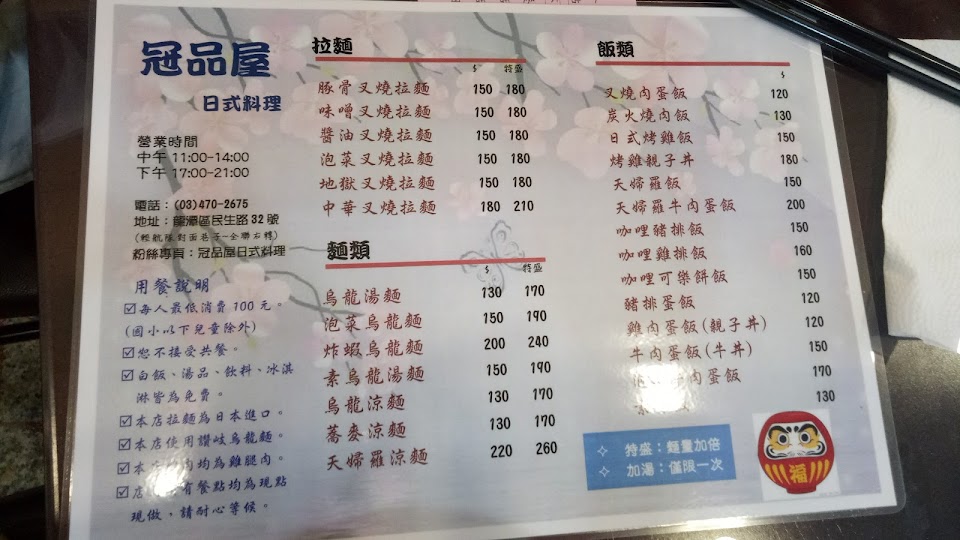 冠品屋
日式料理
營業時間
中午 11:00-14:00
下午 17:00-21:00
電話：(03)470-2675
地址：龍潭區民生路 32 號
(輕航隊對面巷子-全聯右轉)
粉絲專頁：冠品屋日式料理
用餐說明
☑每人最低消費 100 元。
(國小以下兒童除外)
☑恕不接受共餐。
☑白飯、湯品、飲料、冰淇
淋皆為免費。
☑本店拉麵為日本進口。
☑本店使用讚岐烏龍麵。
☑本店 肉均為雞腿肉。
☑店 有餐點均為現點
現做，請耐心等候。
拉麵
$ 特盛
豚骨叉燒拉麵 150 180
味噌叉燒拉麵 150 180
醬油叉燒拉麵 150 180
泡菜叉燒拉麵 150 180
地獄叉燒拉麵 150 180
中華叉燒拉麵 180 210
麵類
$ 特盛
烏龍湯麵 130 170
泡菜烏龍麵 150 190
炸蝦烏龍麵 200 240
素烏龍湯麵 150 190
烏龍涼麵 130 170
蕎麥涼麵 130 170
天婦羅涼麵 220 260
飯類
$
叉燒肉蛋飯 120
炭火燒肉飯 130
日式烤雞飯 150
烤雞親子丼 180
天婦羅飯 150
天婦羅牛肉蛋飯 200
咖哩豬排飯 150
咖哩雞排飯 160
咖哩可樂餅飯 150
豬排蛋飯 120
雞肉蛋飯(親子丼) 120
牛肉蛋飯(牛丼) 150
肉蛋飯 170
130
✧ 特盛：麵量加倍
✧ 加湯：僅限一次
福